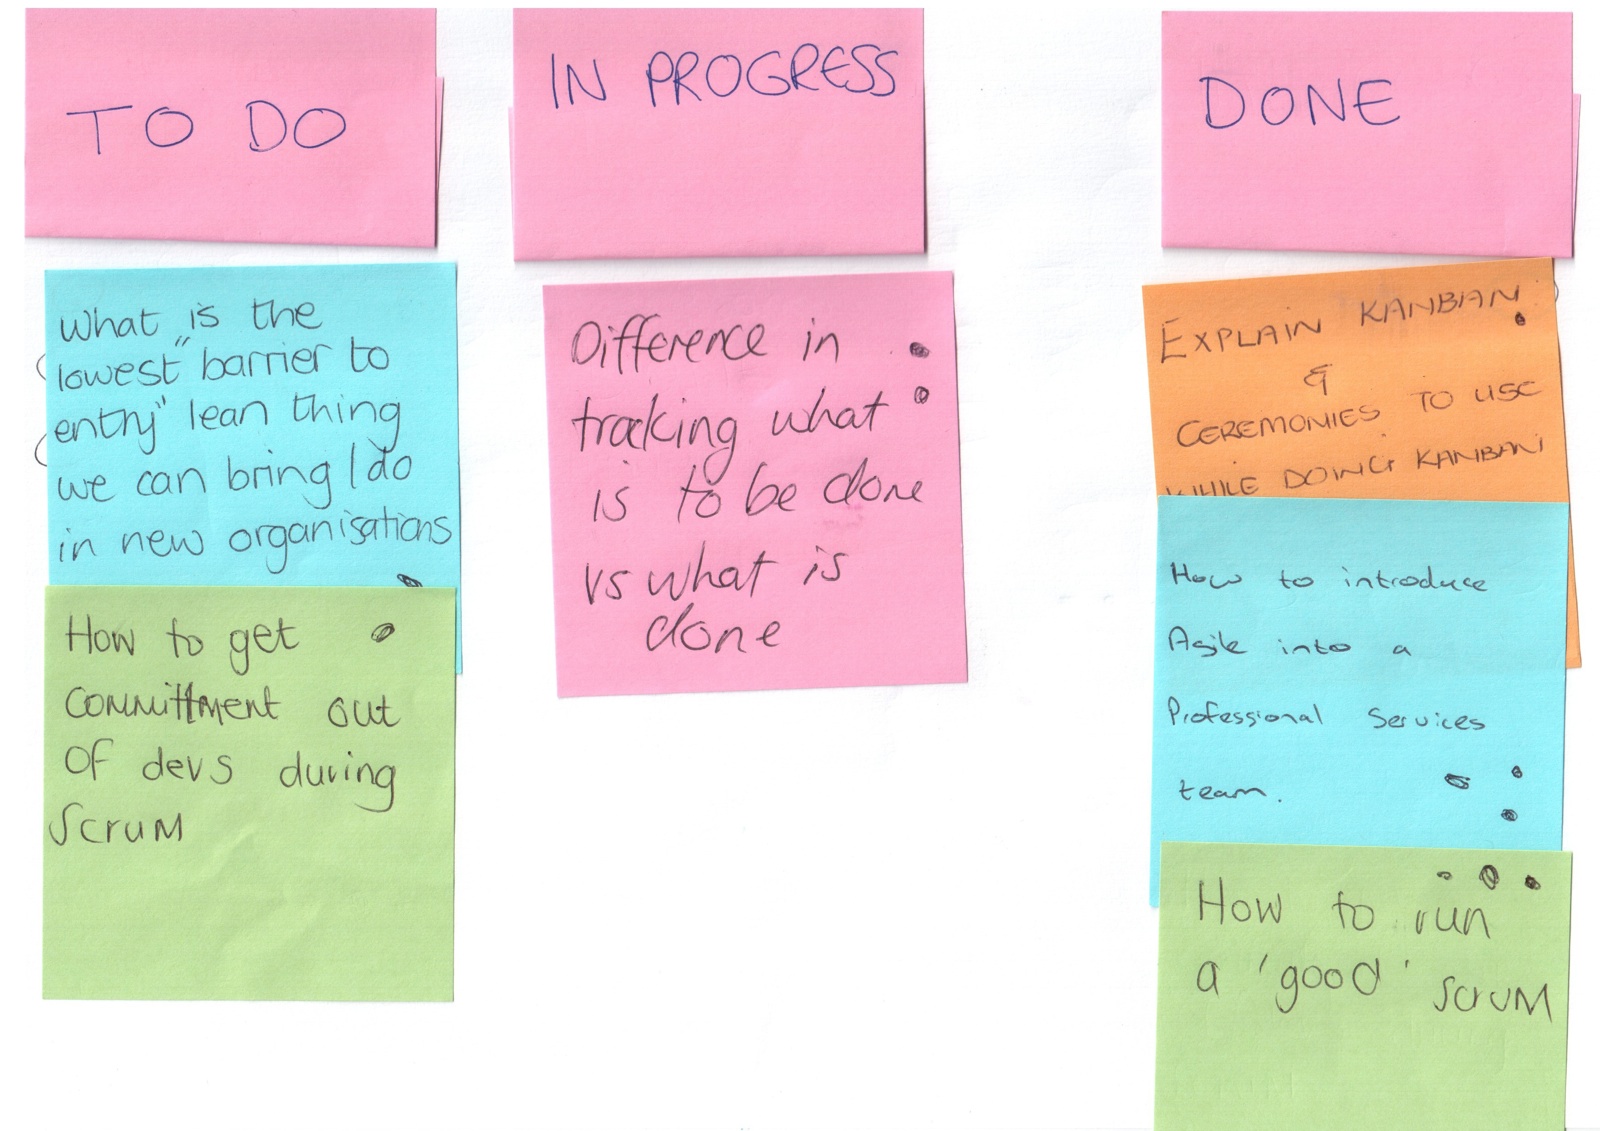 TO DO
What is the
lowest "barrier to
entry" lean thing
we can bring / do
in new organisations
How to get
committment out
of devs during
scrum
IN PROGRESS
Difference in
tracking what
is to be done
vs what is
done
DONE
EXPLAIN KANBAN
&
CEREMONIES TO USE
WHILE DOING KANBAN
How to introduce
Agile into a
Professional Services
team.
How to run
a 'good' scrum